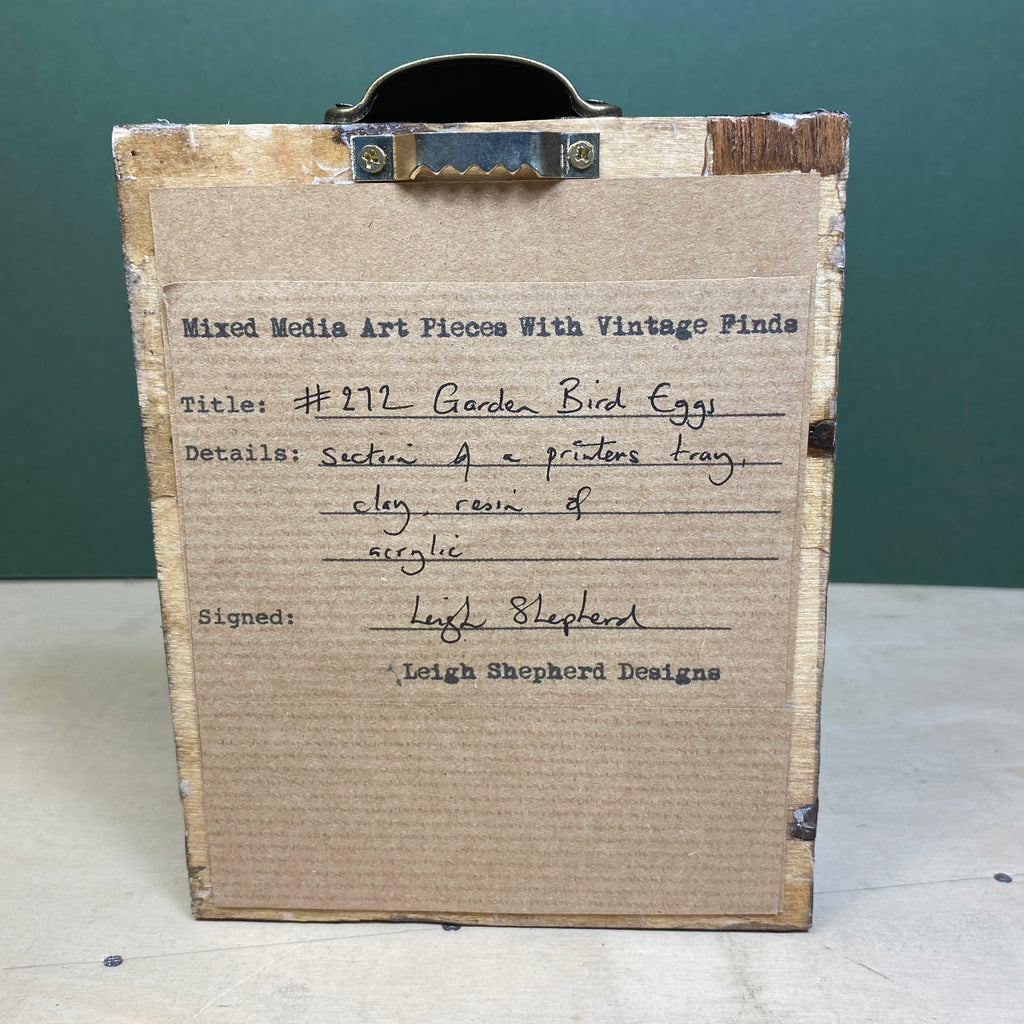 Mixed Media Art Pieces With Vintage Finds
Title: #272 Garden Bird Eggs
Details: section of a printers tray,
clay, resin &
acrylic
Signed: Leigh Shepherd
Leigh Shepherd Designs